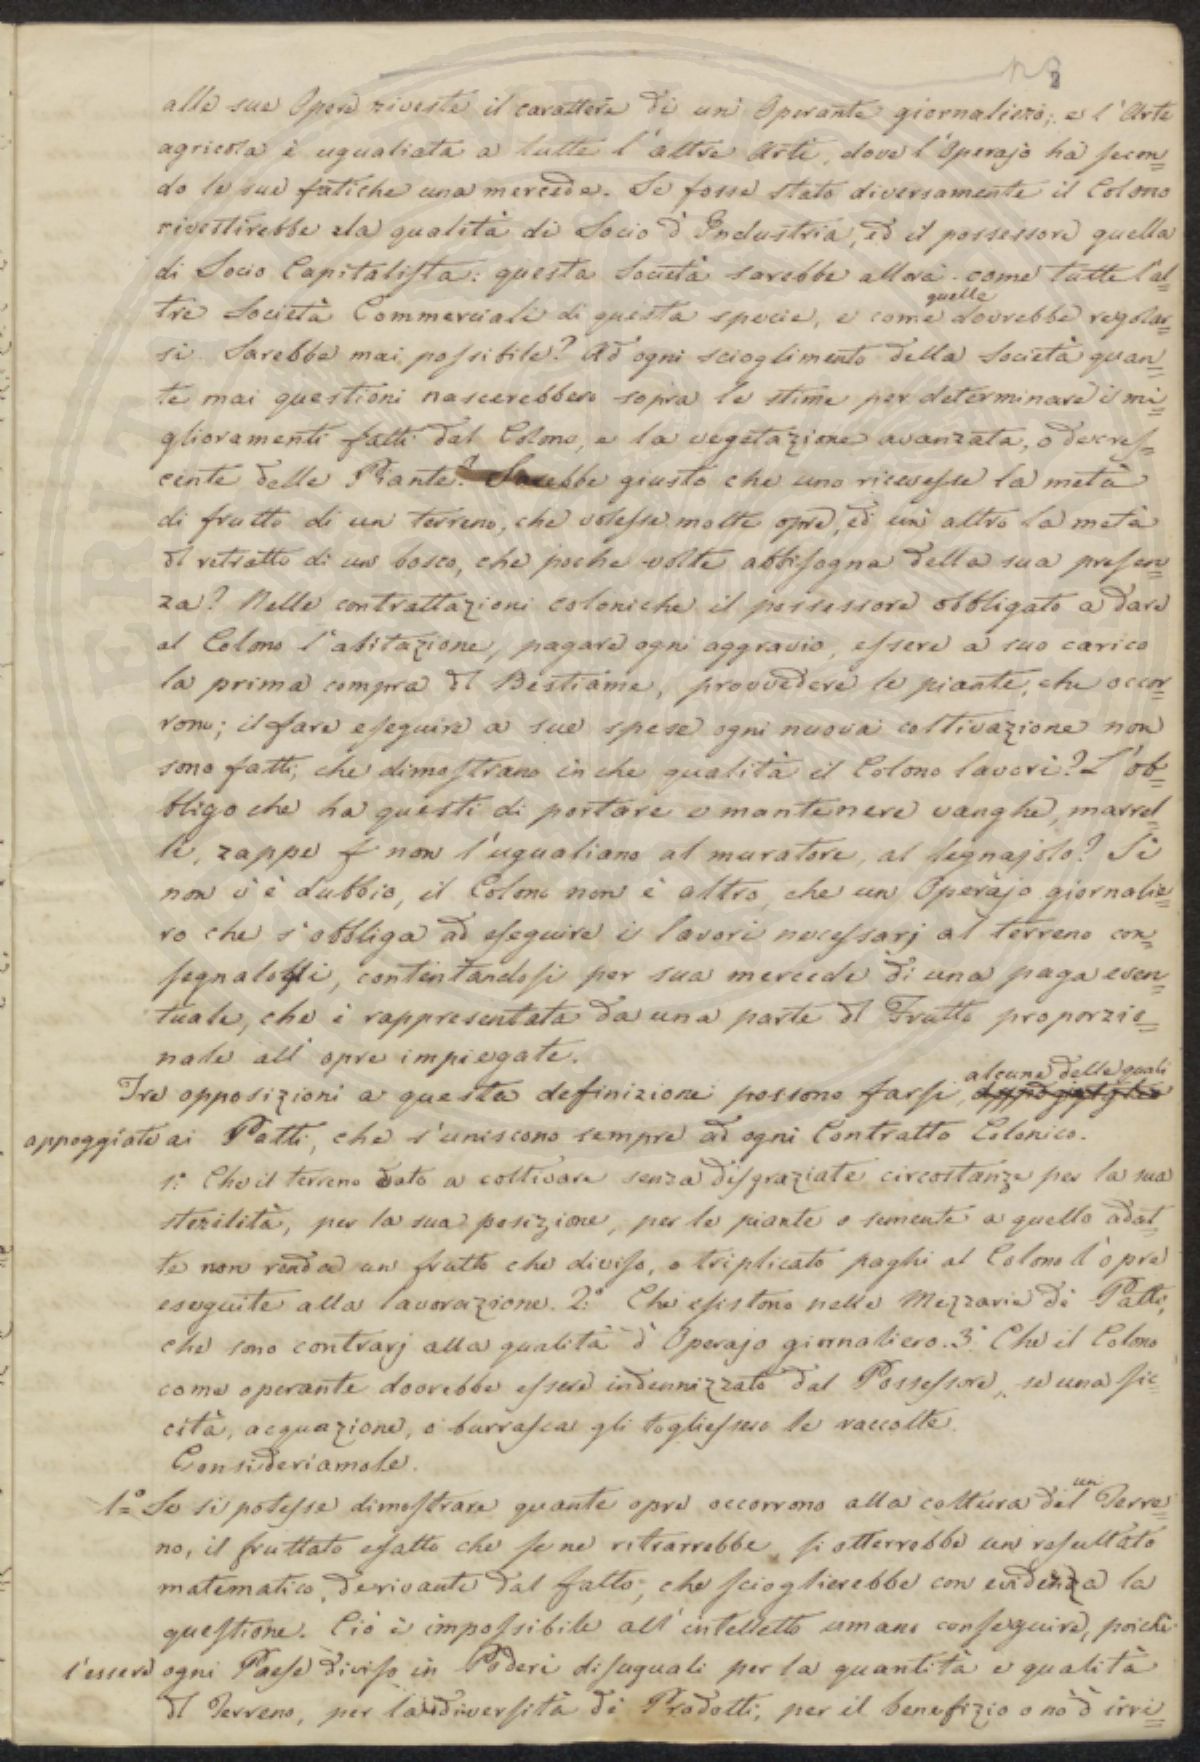 alle sue Opere riveste il carattere di un Operante giornaliero; e l'Arte
agricola è ugualiata a tutte l'altre Arti, dove l'Operajo ha secon=
do le sue fatiche una mercede. Se fosse stato diversamente il Colono
rivestirebbe la qualità di Socio d'Industria, ed il possessore quella
di Socio Capitalista: questa Società sarebbe allora come tutte l'al=
quelle
tre Società Commerciali di questa specie, e come dovrebbe regolar=
si. Sarebbe mai possibile? Ad ogni scioglimento della Società quan=
te mai questioni nascerebbero sopra le stime per determinare i mi=
glioramenti fatti dal Colono, e la vegetazione avanzata, o decres=
cente delle Piante? Sarebbe giusto che uno ricevesse la metà
di frutto di un terreno, che volesse molte opre, ed un altro la metà
del retratto di un bosco, che poche volte abbisogna della sua presen=
za? Nelle contrattazioni coloniche il possessore obbligato a dare
al Colono l'abitazione, pagare ogni aggravio, essere a suo carico
la prima compra del Bestiame, provvedere le piante, che occor=
rono; il fare eseguire a sue spese ogni nuova coltivazione non
sono fatti, che dimostrano in che qualità il Colono lavori? L'ob=
bligo che ha questi di portare e mantenere vanghe, marrel=
li, zappe non l'ugualiano al muratore, al legnajolo? Si
non v'è dubbio, il Colono non è altro, che un Operajo giornalie=
ro che s'obbliga ad eseguire i lavori necessarj al terreno con=
segnatoli, contentandosi per sua mercede di una paga even=
tuale, che è rappresentata da una parte del Frutto proporzio=
nale all'opre impiegate.
alcune delle quali
Tre opposizioni a questa definizione possono farsi
appoggiate ai Patti, che s'uniscono sempre ad ogni Contratto Colonico.
1.° Che il terreno dato a coltivare senza disgraziate circostanze per la sua
sterilità, per la sua posizione, per le piante o semente a quello adat=
te non renda un frutto che diviso, o triplicato paghi al Colono l'opre
eseguite alla lavorazione. 2.° Che esistono nelle Mezzarie de' Patti,
che sono contrarj alla qualità d'Operajo giornaliero. 3.° Che il Colono
come operante dovrebbe essere indennizzato dal Possessore, se una sic=
cità, acquazione, o burrasca gli togliessero le raccolte.
Consideriamole.
un
1.° Se si potesse dimostrare quante opre occorrono alla coltura del Terre=
no, il fruttato esatto che se ne ritrarrebbe, si otterrebbe un resultato
matematico, derivante dal fatto, che scioglierebbe con evidenza la
questione. Ciò è impossibile all'intelletto umano conseguire, poichè
l'essere ogni Paese diviso in Poderi disuguali per la quantità e qualità
del Terreno, per la diversità de' Prodotti, per il benefizio o nò d'irri=